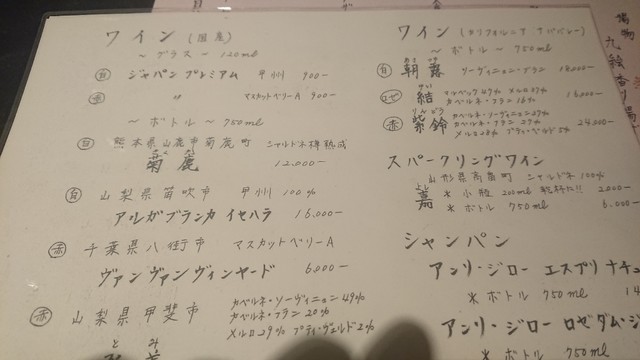 ワイン (国産)
〜 グラス 〜 120ml
白 ジャパンプレミアム 甲州 900-
赤 〃 マスカットベリーA 900-
〜 ボトル 〜 750ml
白 熊本県山鹿市菊鹿町 シャルドネ樽熟成
菊鹿 12.000-
白 山梨県笛吹市 甲州 100%
アルガブランカ イセハラ 16.000-
赤 千葉県八街市 マスカットベリーA
ヴァン ヴァン ヴィンヤード 6.000-
赤 山梨県甲斐市 カベルネ・ソーヴィニヨン 49%
カベルネ・フラン 20%
メルロ 29% プティ・ヴェルド 2%
とみ
ワイン (カリフォルニア ナパバレー)
〜 ボトル 〜 750ml
白 朝露 ソーヴィニヨン・ブラン 18.000-
ロゼ 結 マルベック 47% メルロ 37%
カベルネ・フラン 16% 16.000-
赤 紫鈴 カベルネ・フラン 29%
メルロ 28% プティ・ベルド 5% 24.000-
スパークリングワイン
山形県高畠町 シャルドネ 100%
嘉 * 小瓶 200ml 乾杯に!! 2.000-
よし * ボトル 750ml 6.000-
シャンパン
アンリ・ジロー エスプリ ナチュ
* ボトル 750ml 14
アンリ・ジロー ロゼ ダム・ジ
* ボトル 750ml